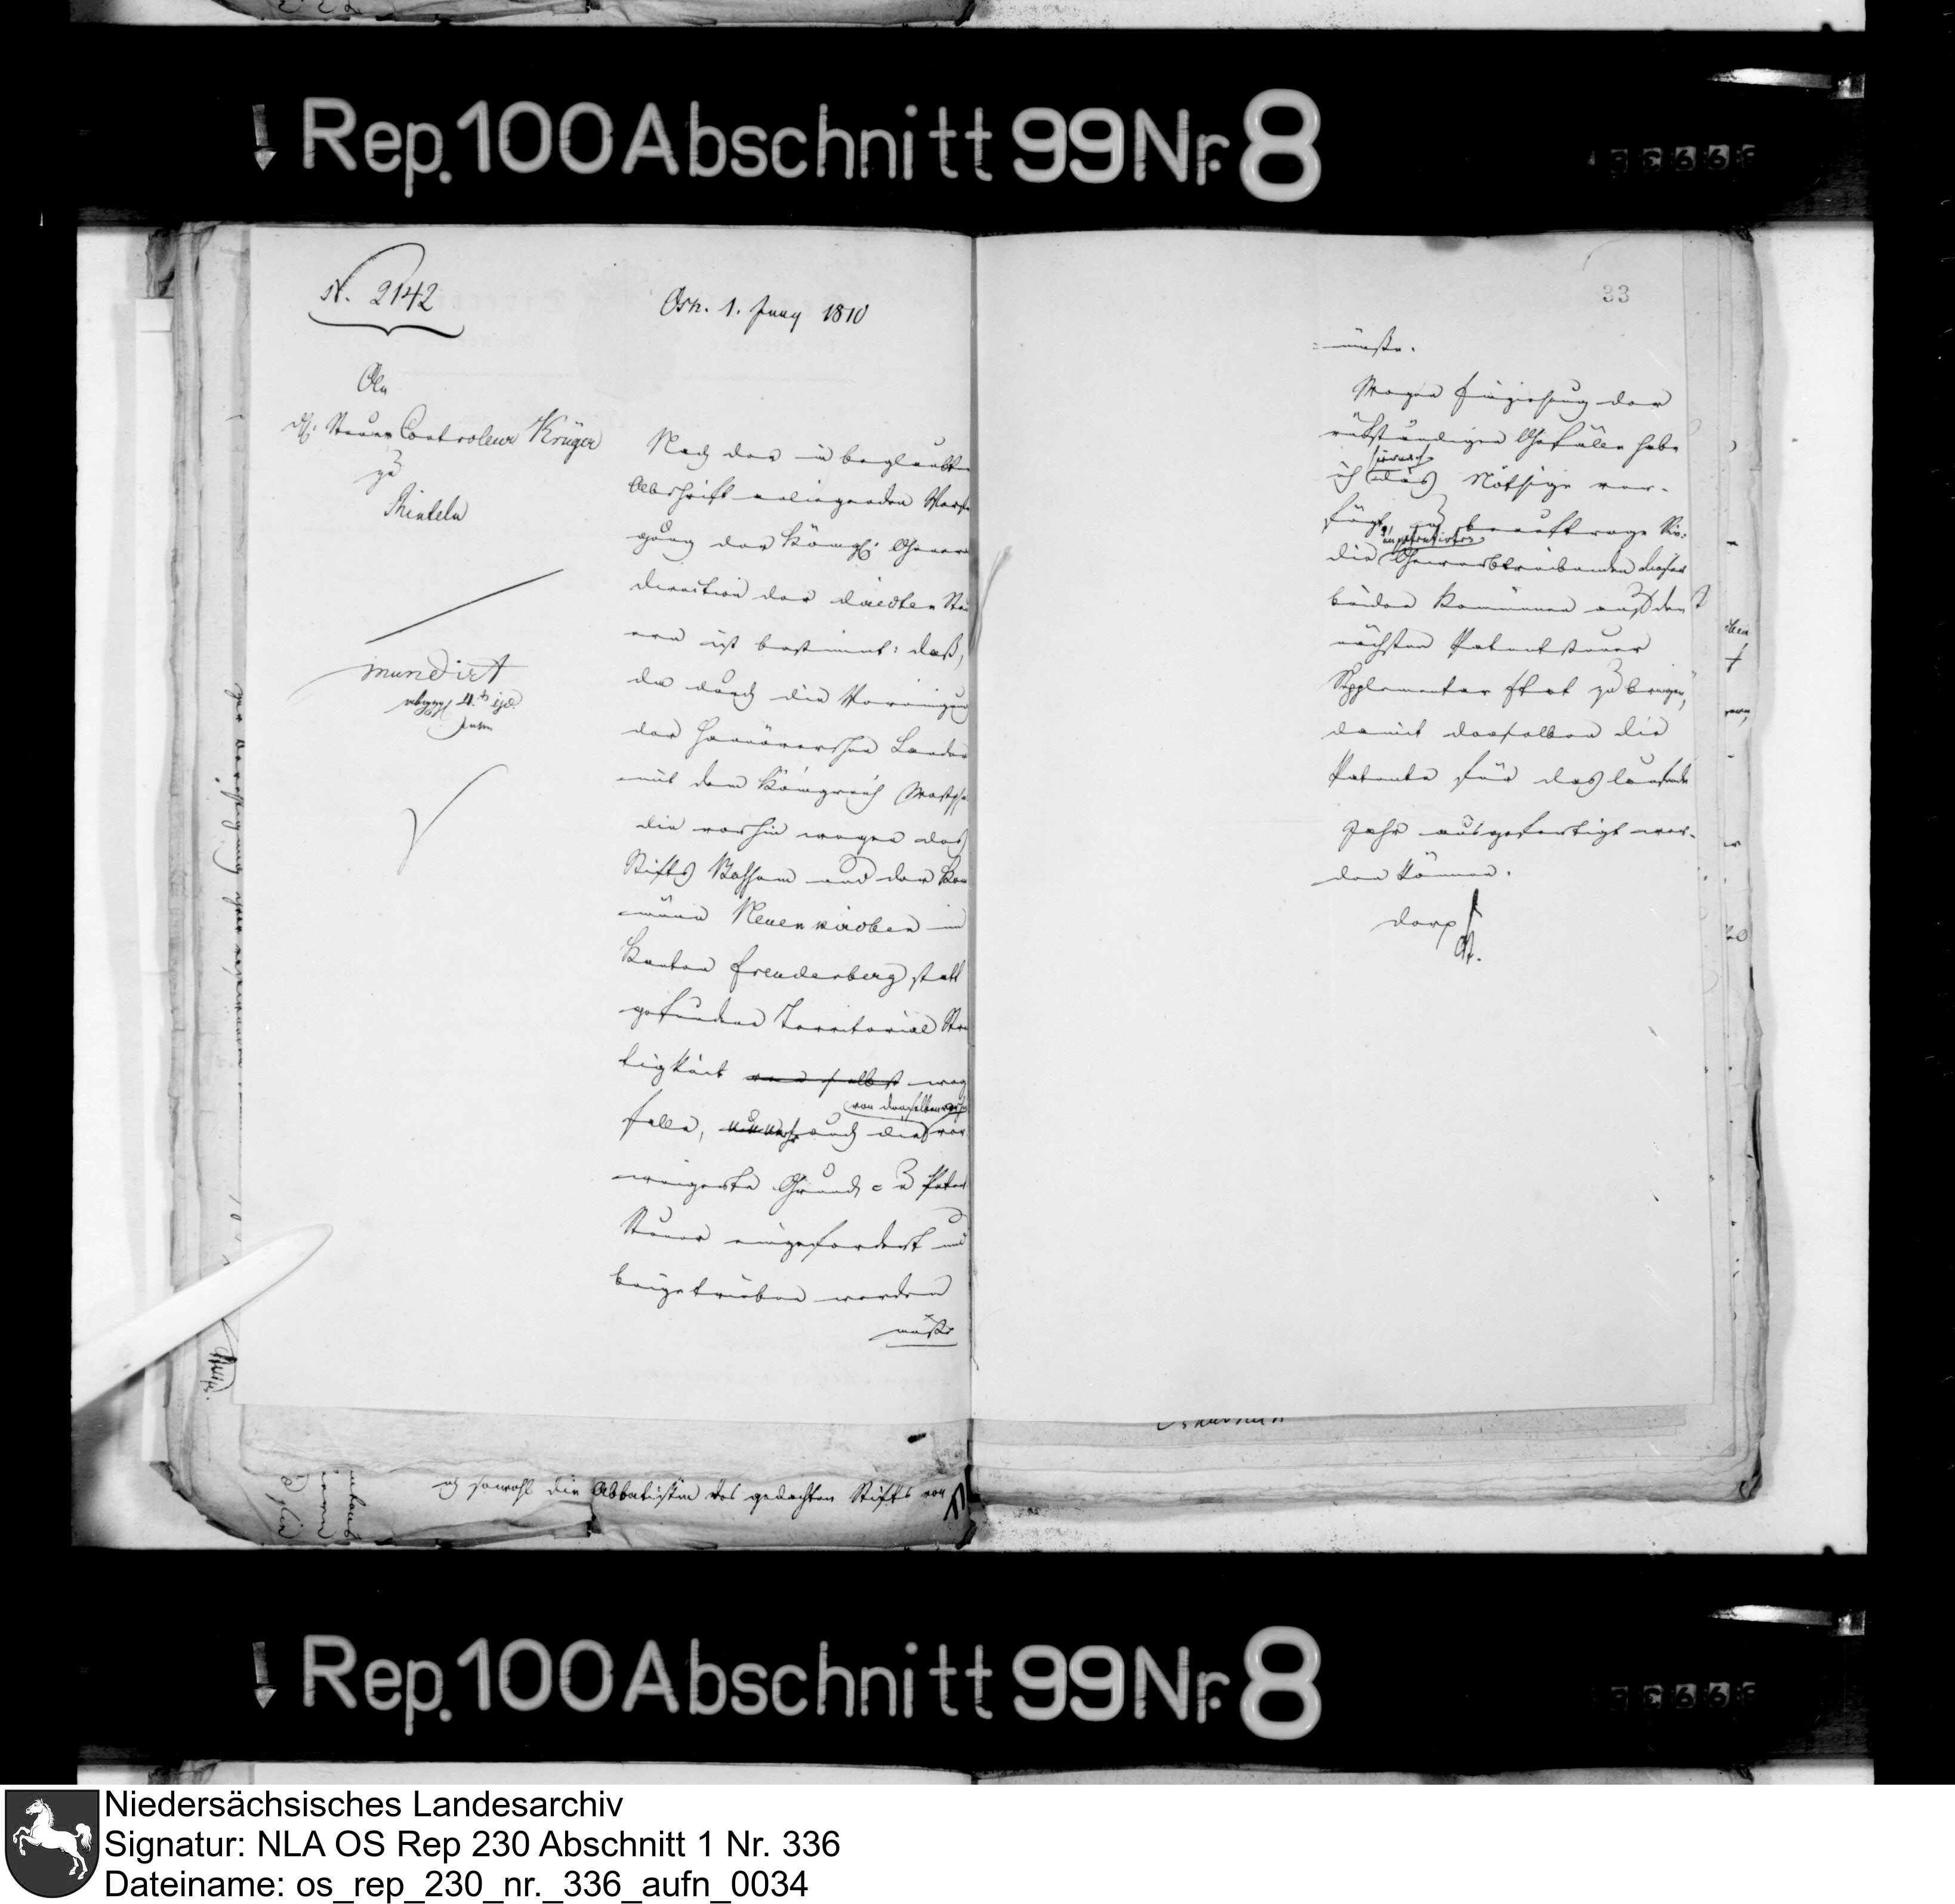 Rep. 100 Abschnitt 99 Nr. 8
N. 2142
Osn. 1. Juny 1810
An
Steuer Controleur Krüger
zu
Rinteln
mundirt
Nach der in beglaubter
Abschrift anliegenden Verfü
gung der Königl: General
direction der directen Steu
ern ist bestimmt: daß,
da durch die Vereinigung
der Hannöverschen Lande
mit dem Königreich Westph
die vorhin wegen des
Stifts Bassum und der Kom
münen Neuenkirchen im
Kanton Freudenberg statt
gefundene Territorial Strei
tigkeit weg
falle, auch die von denselben ver
weigerte Grund- u Patent
Steuer eingefordert und
beigetrieben werden
müßte
33
müßte.
Wegen Einziehung der
rückständigen Gefälle habe
ich hienach das Nöthige ver-
fügt, und beauftrage Sie,
die Gewerbtreibenden dieser
beiden Kommünen auf den
nächsten Patentsteuer
Supplementar Etat zu bringen,
damit denselben die
Patente für das laufende
Jahr ausgefertigt wer-
den können.
sowohl die Abbatissin des gedachten Stifts von
Rep. 100 Abschnitt 99 Nr. 8
Niedersächsisches Landesarchiv
Signatur: NLA OS Rep 230 Abschnitt 1 Nr. 336
Dateiname: os_rep_230_nr._336_aufn_0034